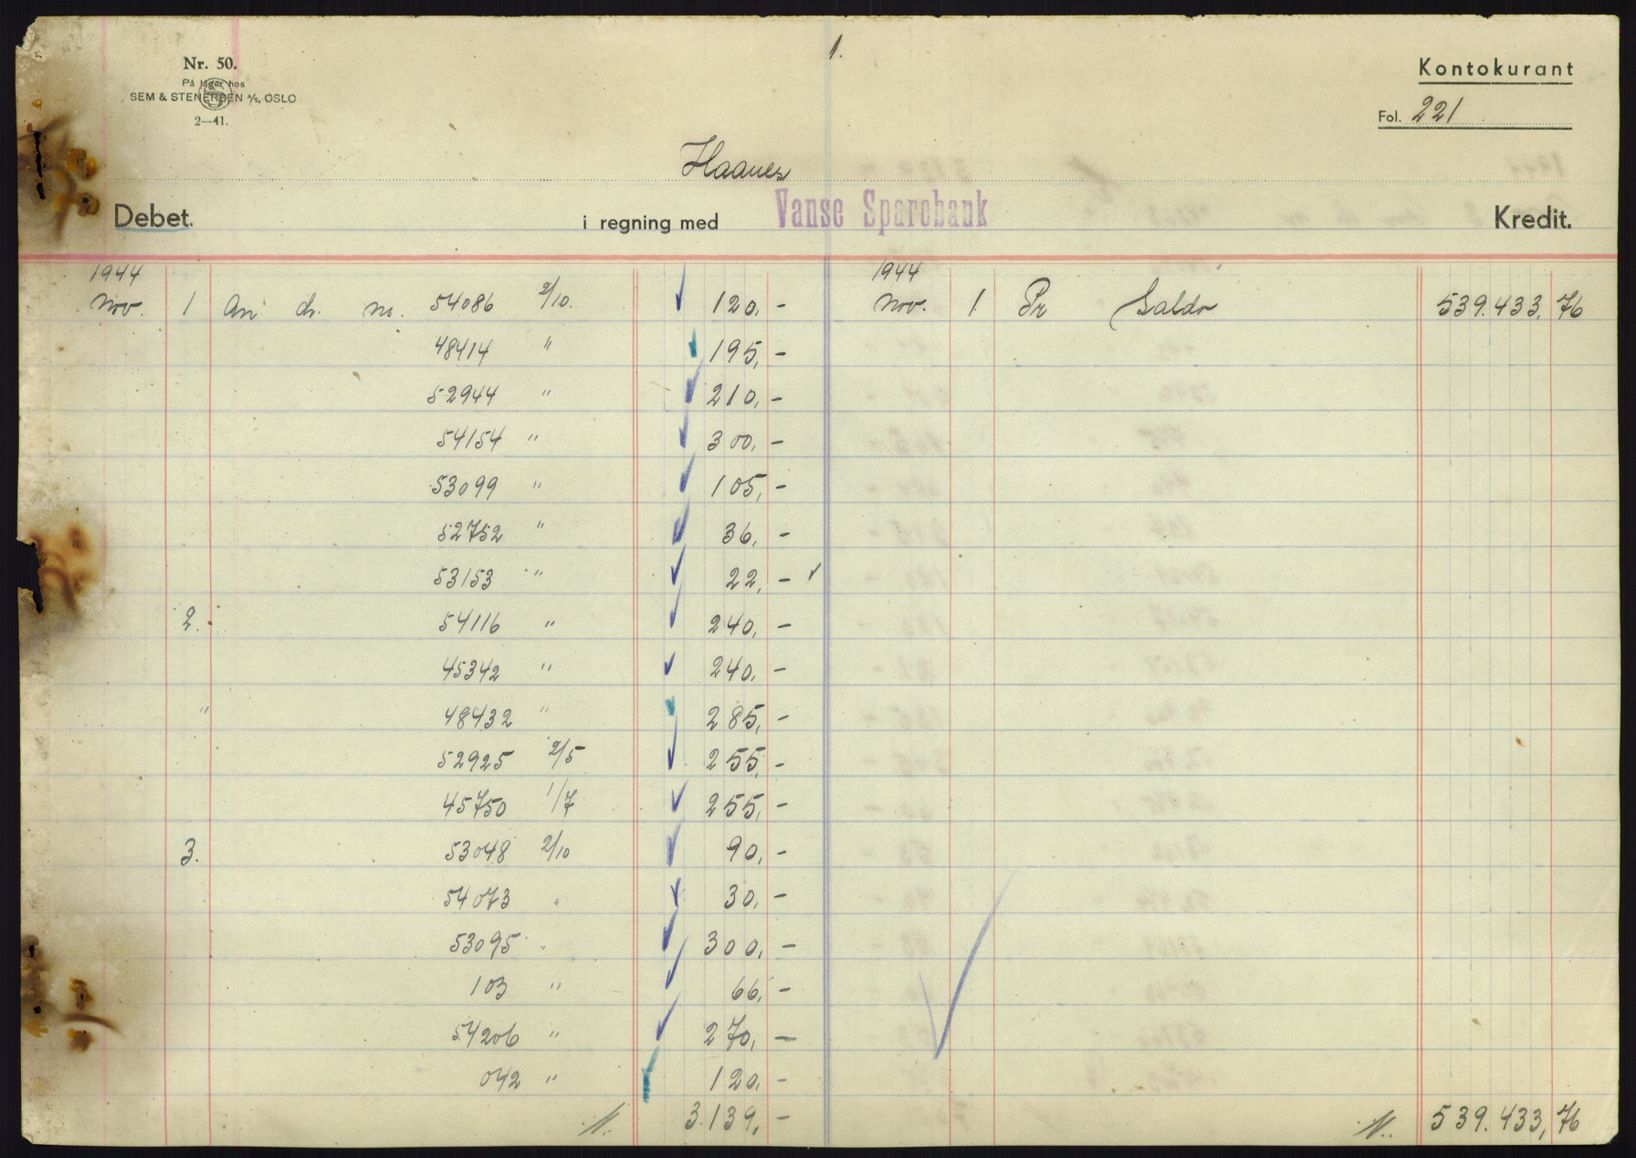 1.
Nr. 50.
På lager hos
SEM & STENERSEN A/S, OSLO
2-41.
Kontokurant
Fol. 221
Haanes
Debet. i regning med Vanse Sparebank Kredit.
1944 1944
Nov. 1 An ch. nr. 54086 2/10. 120,- Nov. 1. Pr Saldo 539.433,76
48414 " 195,-
52944 " 210,-
54154 " 300,-
53099 " 105,-
52752 " 36,-
53153 " 22,-
2. 54116 " 240,-
45342 " 240,-
" 48432 " 285,-
52925 2/5 255,-
45750 1/7 255,-
3. 53048 2/10 90,-
54073 " 30,-
53095 " 300,-
103 " 66,-
54206 " 270,-
042 " 120,-
3.139,- 539.433,76